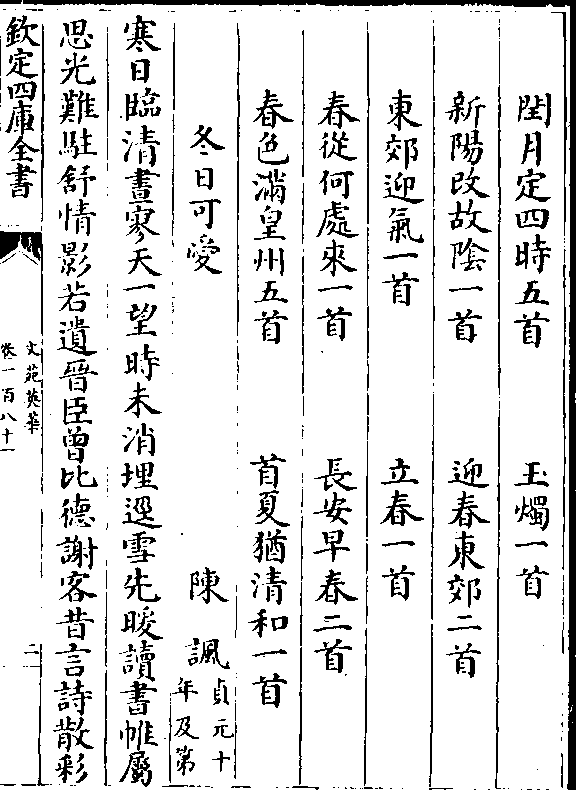 閏月定四時五首　玉燭一首
新陽改故陰一首　迎春東郊二首
東郊迎氣一首　立春一首
春從何處來一首　長安早春二首
春色滿皇州五首　首夏猶清和一首
冬日可愛　陳諷貞元十年及第
寒日臨清晝寥天一望時未消埋逕雪先暖讀書帷屬
思光難駐舒情影若遺晉臣曾比德謝客昔言詩散彩
欽定四庫全書
文苑英華
卷一百八十一
二